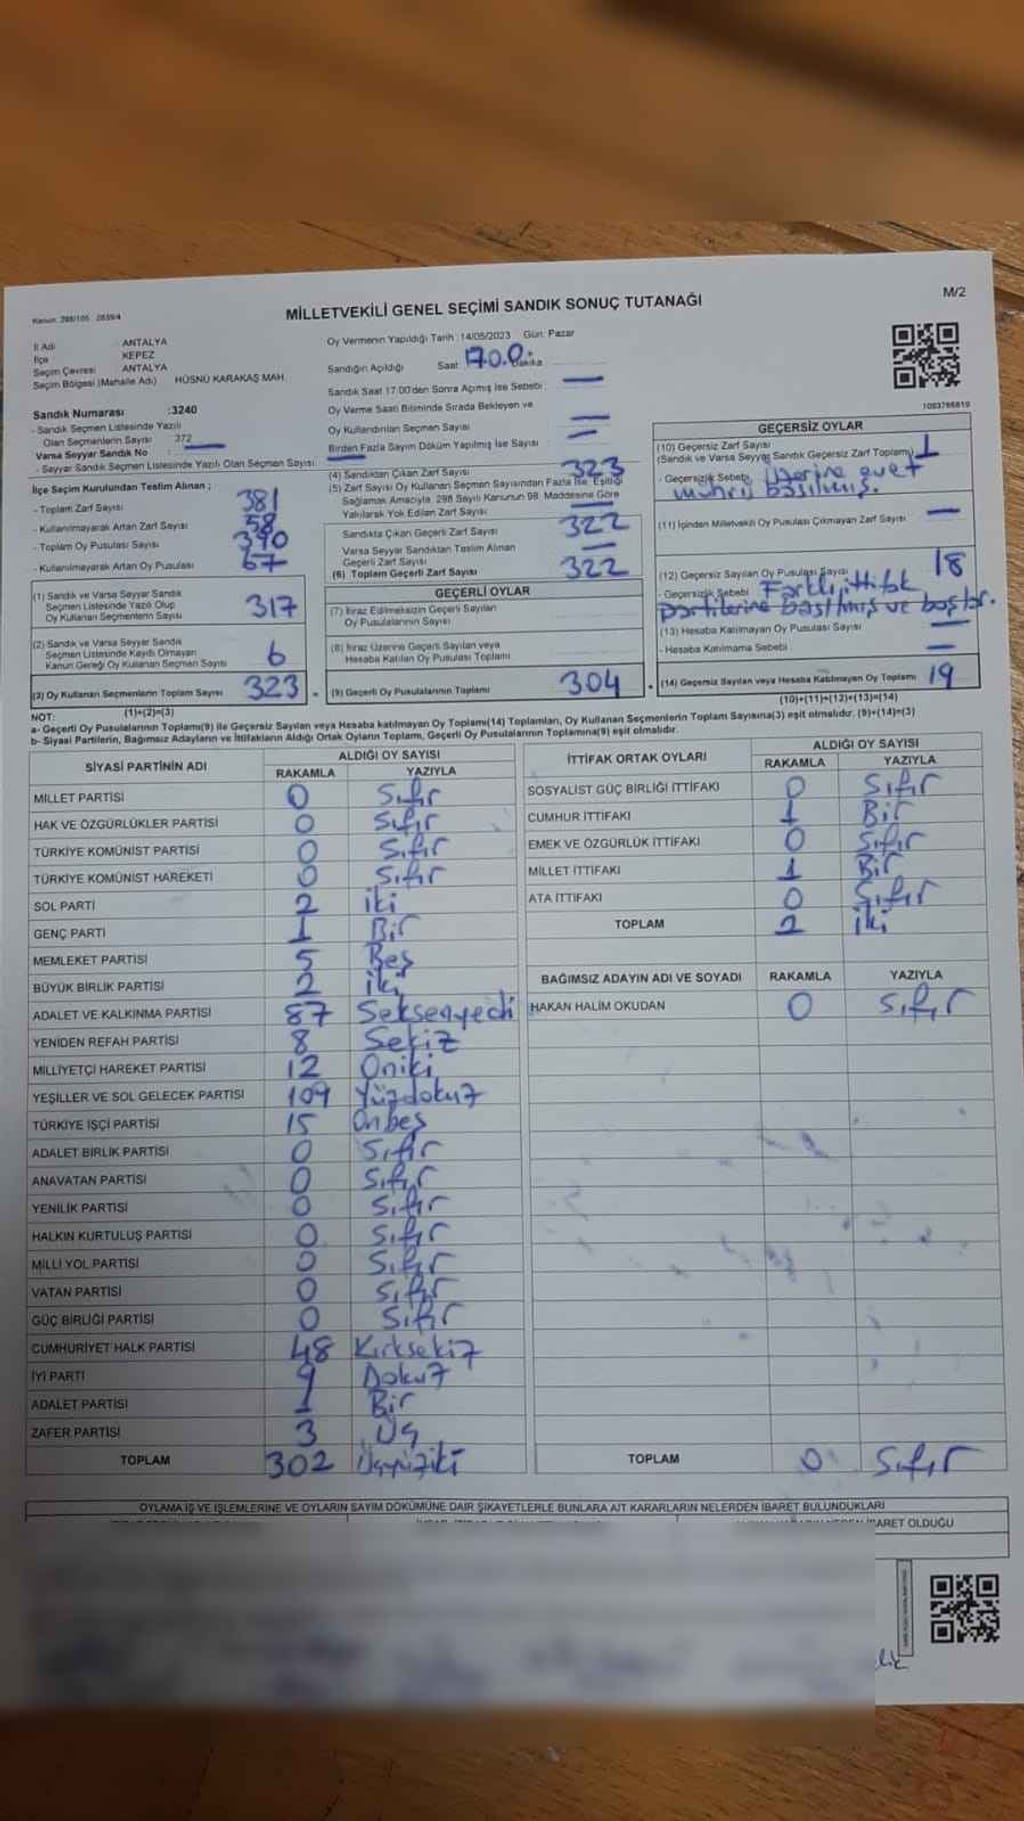 Kanun: 298/105 2839/4
MİLLETVEKİLİ GENEL SEÇİMİ SANDIK SONUÇ TUTANAĞI
M/2
İl Adı : ANTALYA
İlçe : KEPEZ
Seçim Çevresi : ANTALYA
Seçim Bölgesi (Mahalle Adı) : HÜSNÜ KARAKAŞ MAH.
Sandık Numarası :3240
- Sandık Seçmen Listesinde Yazılı
Olan Seçmenlerin Sayısı : 372
Varsa Seyyar Sandık No :
- Seyyar Sandık Seçmen Listesinde Yazılı Olan Seçmen Sayısı :
İlçe Seçim Kurulundan Teslim Alınan ;
- Toplam Zarf Sayısı 381
- Kullanılmayarak Artan Zarf Sayısı 58
- Toplam Oy Pusulası Sayısı 390
- Kullanılmayarak Artan Oy Pusulası 67
(1) Sandık ve Varsa Seyyar Sandık
Seçmen Listesinde Yazılı Olup
Oy Kullanan Seçmenlerin Sayısı 317
(2) Sandık ve Varsa Seyyar Sandık
Seçmen Listesinde Kaydı Olmayan
Kanun Gereği Oy Kullanan Seçmen Sayısı 6
(3) Oy Kullanan Seçmenlerin Toplam Sayısı 323
(1)+(2)=(3)
Oy Vermenin Yapıldığı Tarih : 14/05/2023 Gün: Pazar
Sandığın Açıldığı Saat 17.00 Dakika
Sandık Saat 17:00'den Sonra Açılmış İse Sebebi : —
Oy Verme Saati Bitiminde Sırada Bekleyen ve
Oy Kullandırılan Seçmen Sayısı —
Birden Fazla Sayım Döküm Yapılmış İse Sayısı —
(4) Sandıktan Çıkan Zarf Sayısı 323
(5) Zarf Sayısı Oy Kullanan Seçmen Sayısından Fazla İse, Eşitliği
Sağlamak Amacıyla 298 Sayılı Kanunun 98. Maddesine Göre
Yakılarak Yok Edilen Zarf Sayısı —
Sandıkta Çıkan Geçerli Zarf Sayısı 322
Varsa Seyyar Sandıktan Teslim Alınan
Geçerli Zarf Sayısı —
(6) Toplam Geçerli Zarf Sayısı 322
GEÇERLİ OYLAR
(7) İtiraz Edilmeksizin Geçerli Sayılan
Oy Pusulalarının Sayısı
(8) İtiraz Üzerine Geçerli Sayılan veya
Hesaba Katılan Oy Pusulası Toplamı
(9) Geçerli Oy Pusulalarının Toplamı 304
1093766819
GEÇERSİZ OYLAR
(10) Geçersiz Zarf Sayısı
(Sandık ve Varsa Seyyar Sandık Geçersiz Zarf Toplamı) 1
- Geçersizlik Sebebi Üzerine evet
mührü basılmış.
(11) İçinden Milletvekili Oy Pusulası Çıkmayan Zarf Sayısı —
(12) Geçersiz Sayılan Oy Pusulası Sayısı 18
- Geçersizlik Sebebi Farklı ittifak
partilerine basılmış ve boştur.
(13) Hesaba Katılmayan Oy Pusulası Sayısı —
- Hesaba Katılmama Sebebi —
(14) Geçersiz Sayılan veya Hesaba Katılmayan Oy Toplamı 19
(10)+(11)+(12)+(13)=(14)
NOT:
a- Geçerli Oy Pusulalarının Toplamı(9) ile Geçersiz Sayılan veya Hesaba katılmayan Oy Toplamı(14) Toplamları, Oy Kullanan Seçmenlerin Toplam Sayısına(3) eşit olmalıdır. (9)+(14)=(3)
b- Siyasi Partilerin, Bağımsız Adayların ve İttifakların Aldığı Ortak Oyların Toplamı, Geçerli Oy Pusulalarının Toplamına(9) eşit olmalıdır.
SİYASİ PARTİNİN ADI ALDIĞI OY SAYISI
RAKAMLA YAZIYLA
MİLLET PARTİSİ 0 Sıfır
HAK VE ÖZGÜRLÜKLER PARTİSİ 0 Sıfır
TÜRKİYE KOMÜNİST PARTİSİ 0 Sıfır
TÜRKİYE KOMÜNİST HAREKETİ 0 Sıfır
SOL PARTİ 2 iki
GENÇ PARTİ 1 Bir
MEMLEKET PARTİSİ 5 Beş
BÜYÜK BİRLİK PARTİSİ 2 iki
ADALET VE KALKINMA PARTİSİ 87 Seksenyedi
YENİDEN REFAH PARTİSİ 8 Sekiz
MİLLİYETÇİ HAREKET PARTİSİ 12 Oniki
YEŞİLLER VE SOL GELECEK PARTİSİ 109 Yüzdokuz
TÜRKİYE İŞÇİ PARTİSİ 15 Onbeş
ADALET BİRLİK PARTİSİ 0 Sıfır
ANAVATAN PARTİSİ 0 Sıfır
YENİLİK PARTİSİ 0 Sıfır
HALKIN KURTULUŞ PARTİSİ 0 Sıfır
MİLLİ YOL PARTİSİ 0 Sıfır
VATAN PARTİSİ 0 Sıfır
GÜÇ BİRLİĞİ PARTİSİ 0 Sıfır
CUMHURİYET HALK PARTİSİ 48 Kırksekiz
İYİ PARTİ 9 Dokuz
ADALET PARTİSİ 1 Bir
ZAFER PARTİSİ 3 Üç
TOPLAM 302 Üçyüziki
İTTİFAK ORTAK OYLARI ALDIĞI OY SAYISI
RAKAMLA YAZIYLA
SOSYALİST GÜÇ BİRLİĞİ İTTİFAKI 0 Sıfır
CUMHUR İTTİFAKI 1 Bir
EMEK VE ÖZGÜRLÜK İTTİFAKI 0 Sıfır
MİLLET İTTİFAKI 1 Bir
ATA İTTİFAKI 0 Sıfır
TOPLAM 2 iki
BAĞIMSIZ ADAYIN ADI VE SOYADI RAKAMLA YAZIYLA
HAKAN HALİM OKUDAN 0 Sıfır
TOPLAM 0 Sıfır
OYLAMA İŞ VE İŞLEMLERİNE VE OYLARIN SAYIM DÖKÜMÜNE DAİR ŞİKAYETLERLE BUNLARA AİT KARARLARIN NELERDEN İBARET BULUNDUKLARI
BARET OLDUĞU